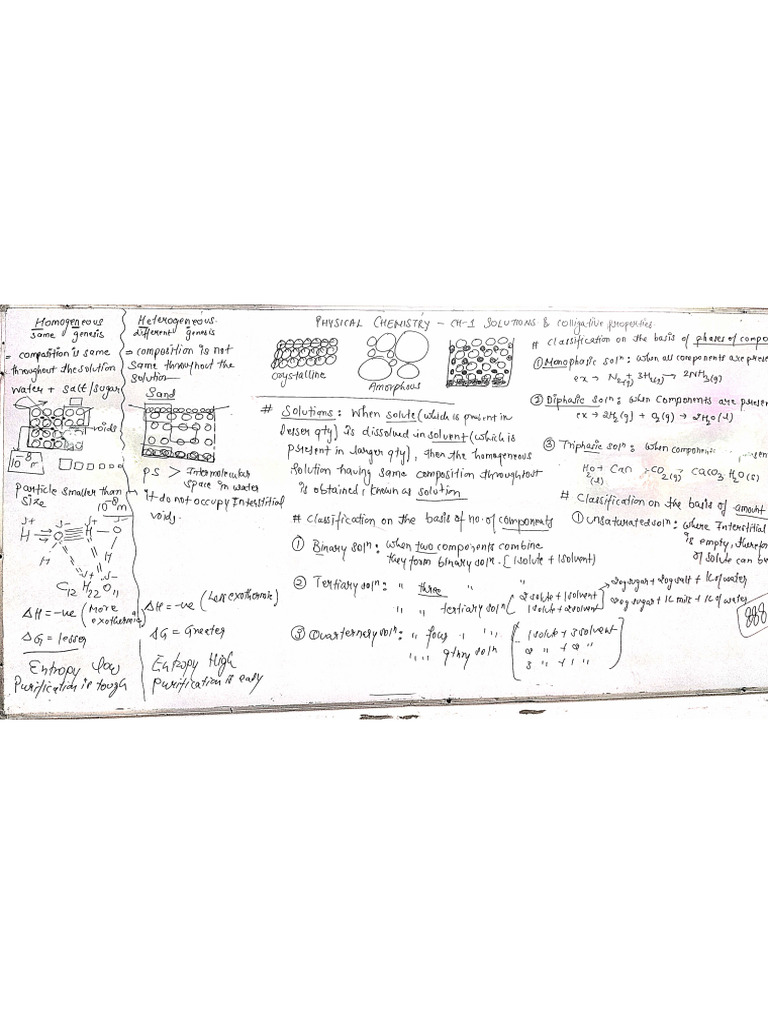 Homogeneous
same genesis
= composition is same
throughout the solution
water + salt/sugar
voids
10⁻⁸ m
Particle smaller than
size 10⁻⁸m
δ+ δ- δ+ δ-
H → O H — O
H H
δ+ δ-
C₁₂ H₂₂ O₁₁
ΔH = -ve (More exothermic)
ΔG = lesser
Entropy low
Purification is tough
Heterogeneous
different genesis
= composition is not
same throughout the
solution
Sand
P.S > Intermolecular
space in water
it do not occupy Interstitial
voids.
ΔH = -ve (Less exothermic)
ΔG = Greater
Entropy High
Purification is easy
PHYSICAL CHEMISTRY - CH-1 SOLUTIONS & Colligative properties
crystalline
Amorphous
# Solutions: When solute (which is present in
lesser qty) is dissolved in solvent (which is
present in larger qty), then the homogeneous
solution having same composition throughout
is obtained, known as solution
# Classification on the basis of no. of components
① Binary solⁿ: when two components combine
they form binary solⁿ. [1 solute + 1 solvent)
② Tertiary solⁿ: " three " "
" " tertiary solⁿ (2 solute + 1 solvent) → 20g sugar + 20g salt + 1L of water
1 solute + 2 solvent → 20g sugar + 1L milk + 1L of water
③ Quarternery solⁿ: " four " "
" " qtnry solⁿ
[1 solute + 3 solvent
2 " + 2 "
3 " + 1 "]
# Classification on the basis of phases of compo
① Monophasic solⁿ: when all components are prese
ex → N₂(g) + 3H₂(g) → 2NH₃(g)
② Diphasic solⁿ: when Components are presen
ex → 2H₂(g) + O₂(g) → 2H₂O(l)
③ Triphasic solⁿ: when component
H₂O(l) + Can CO₂(g) → CaCO₃.H₂O(s)
# Classification on the basis of amount
① Unsaturated solⁿ: where Interstitial
is empty, therefor
of solute can be
888